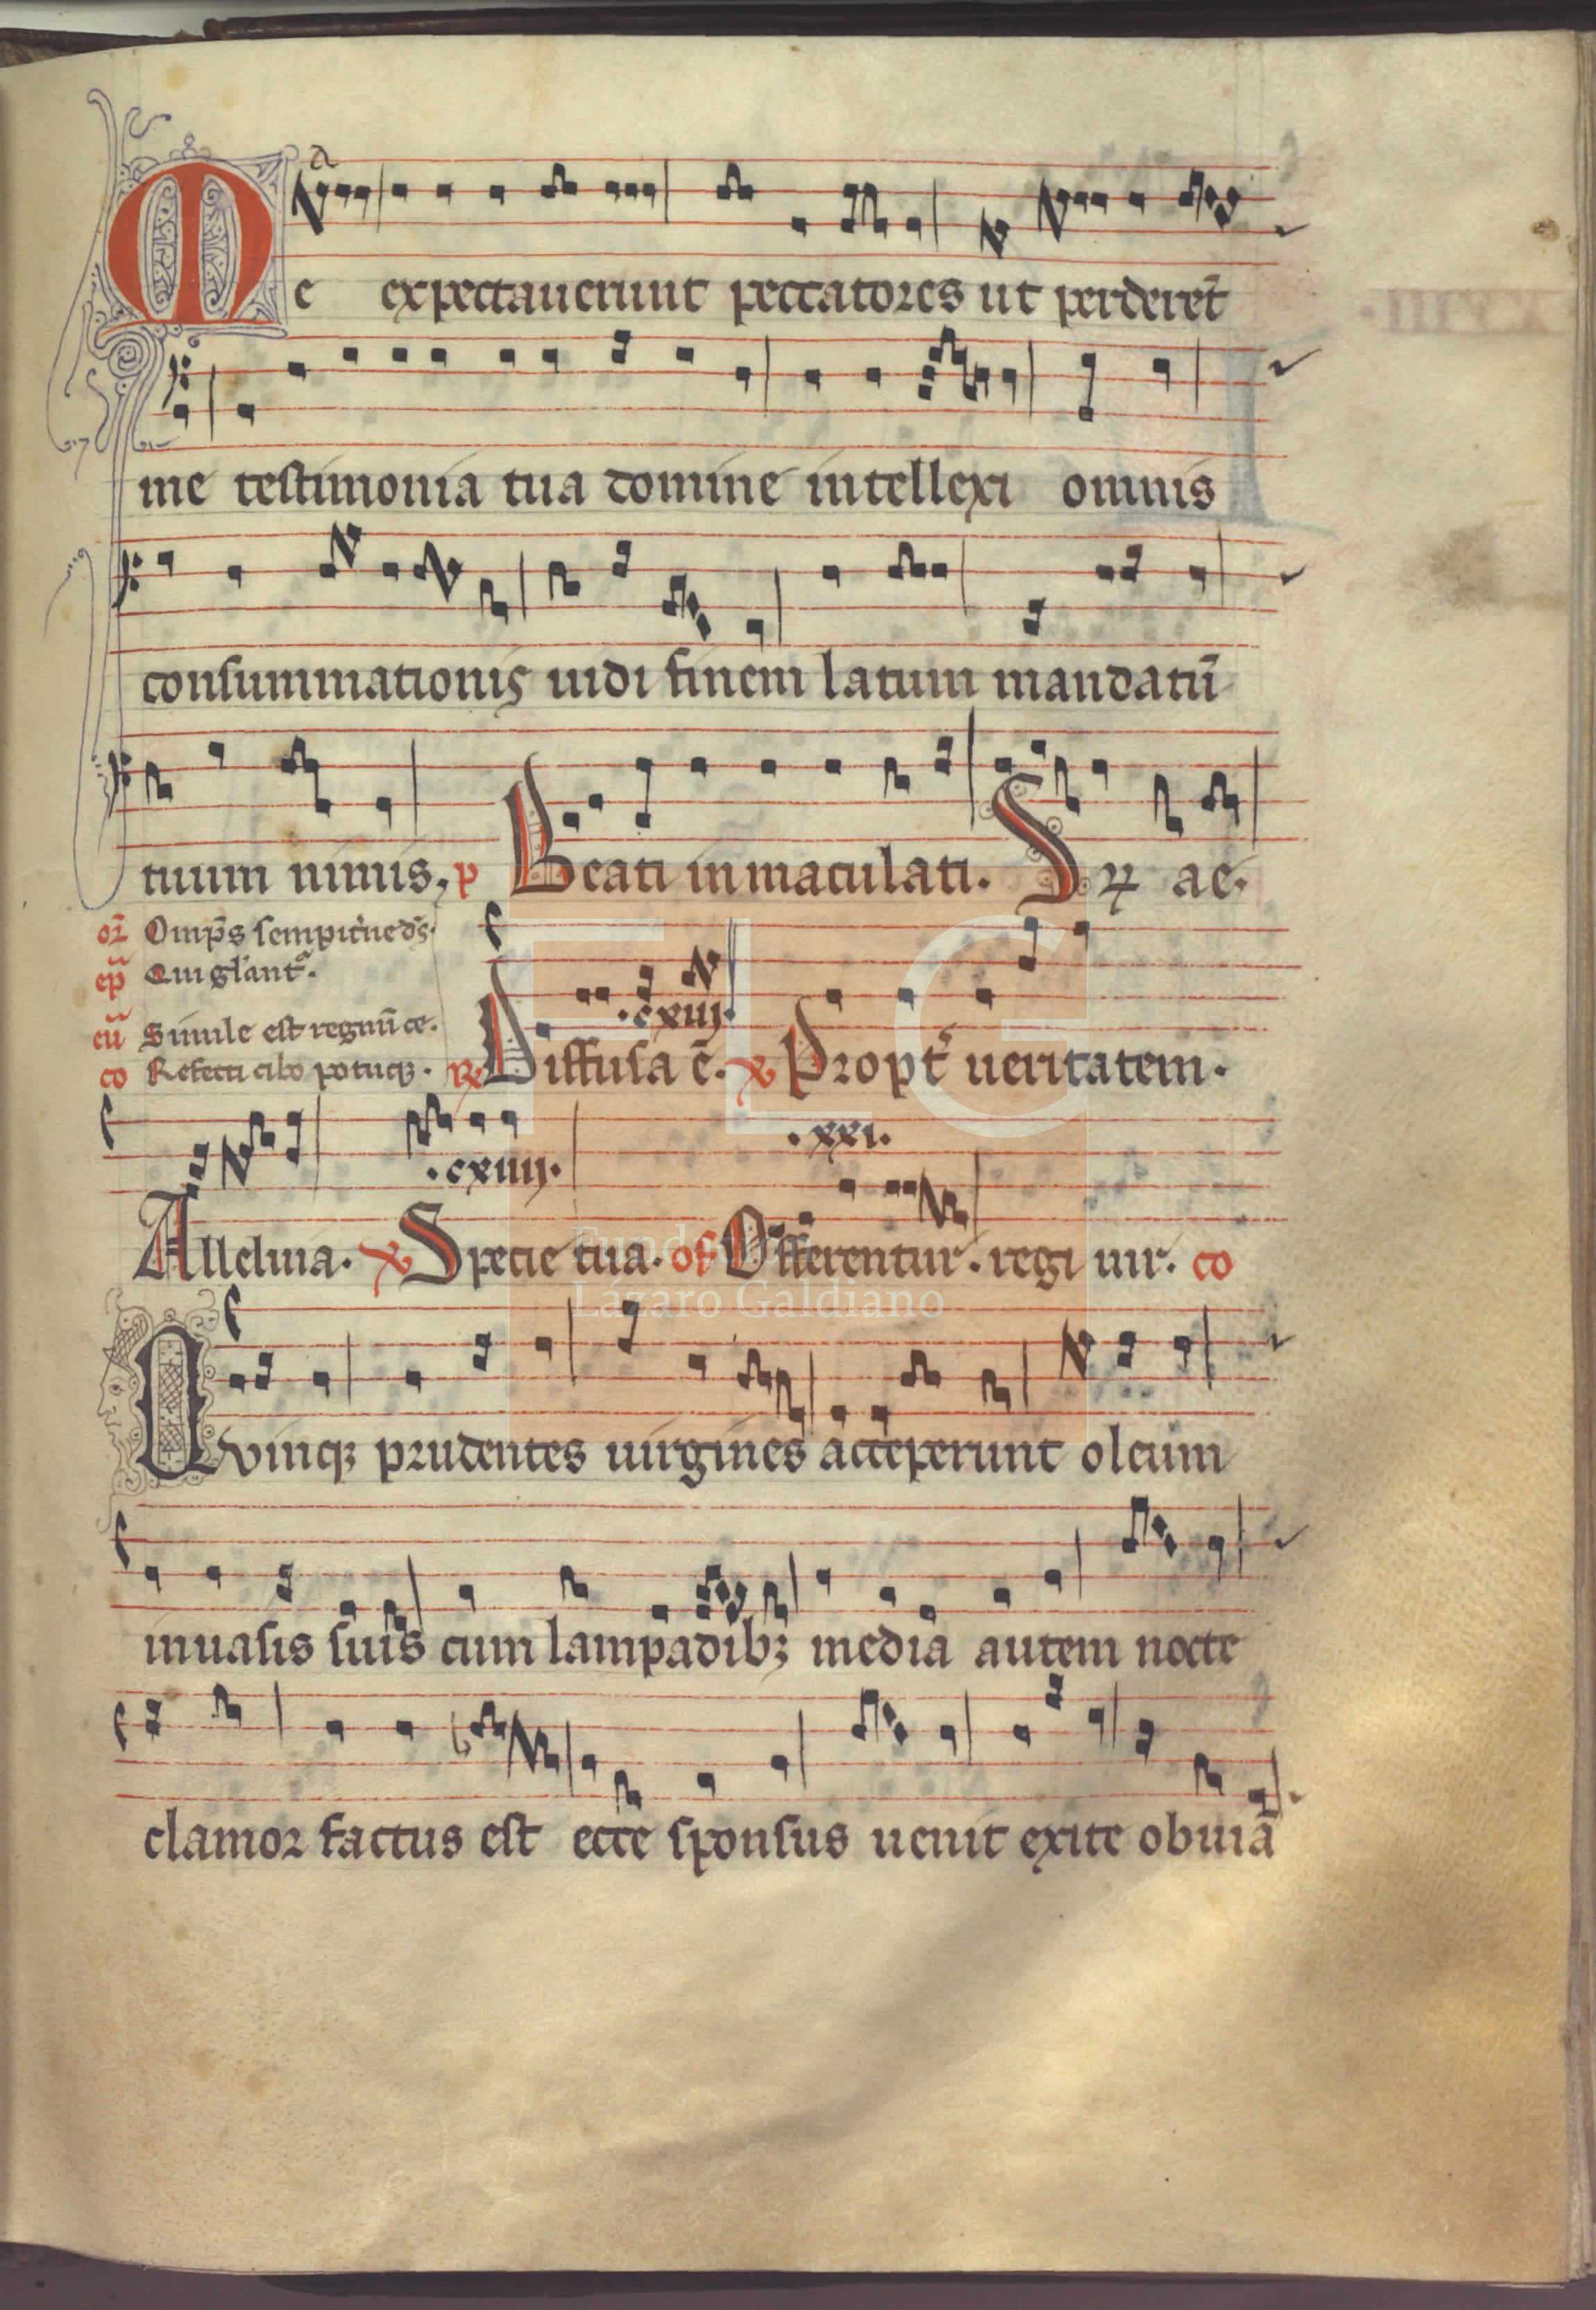 a
Me expectauerunt peccatores ut perderēt
me testimonia tua domine intellexi omnis
consummationis uidi finem latum mandatū
tuum nimis, p Beati inmaculati. S ae.
or̄ Omp̄s sempit'ne ds̄.
ep̄ Qui gl'ant'.
eū Simile est regnū ce.
co Refecti cibo potuqȝ.
.cxiij.
℟ Diffusa ē. ℣ Propt' ueritatem.
.cxiiij. .xxi.
Alleluia. ℣ Specie tua. of Offerentur. regi uir. co
Quinqȝ prudentes uirgines acceperunt oleum
inuasis suis cum lampadibȝ media autem nocte
clamor factus est ecce sponsus uenit exite obuiā
FLG
Lázaro Galdiano